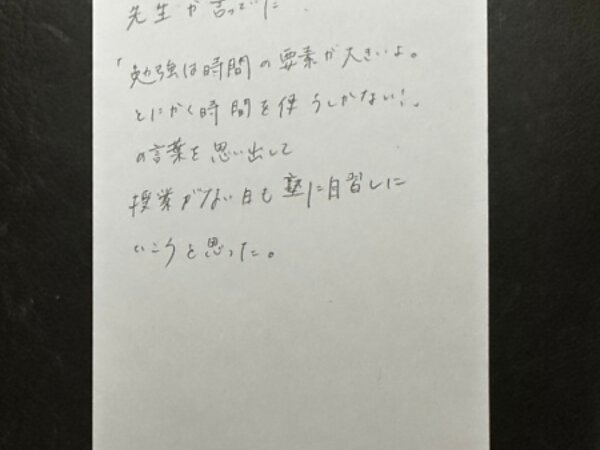 先生が言っていた
「勉強は時間の要素が大きいよ。
とにかく時間を使うしかない!」
の言葉を思い出して
授業がない日も塾に自習しに
いこうと思った。